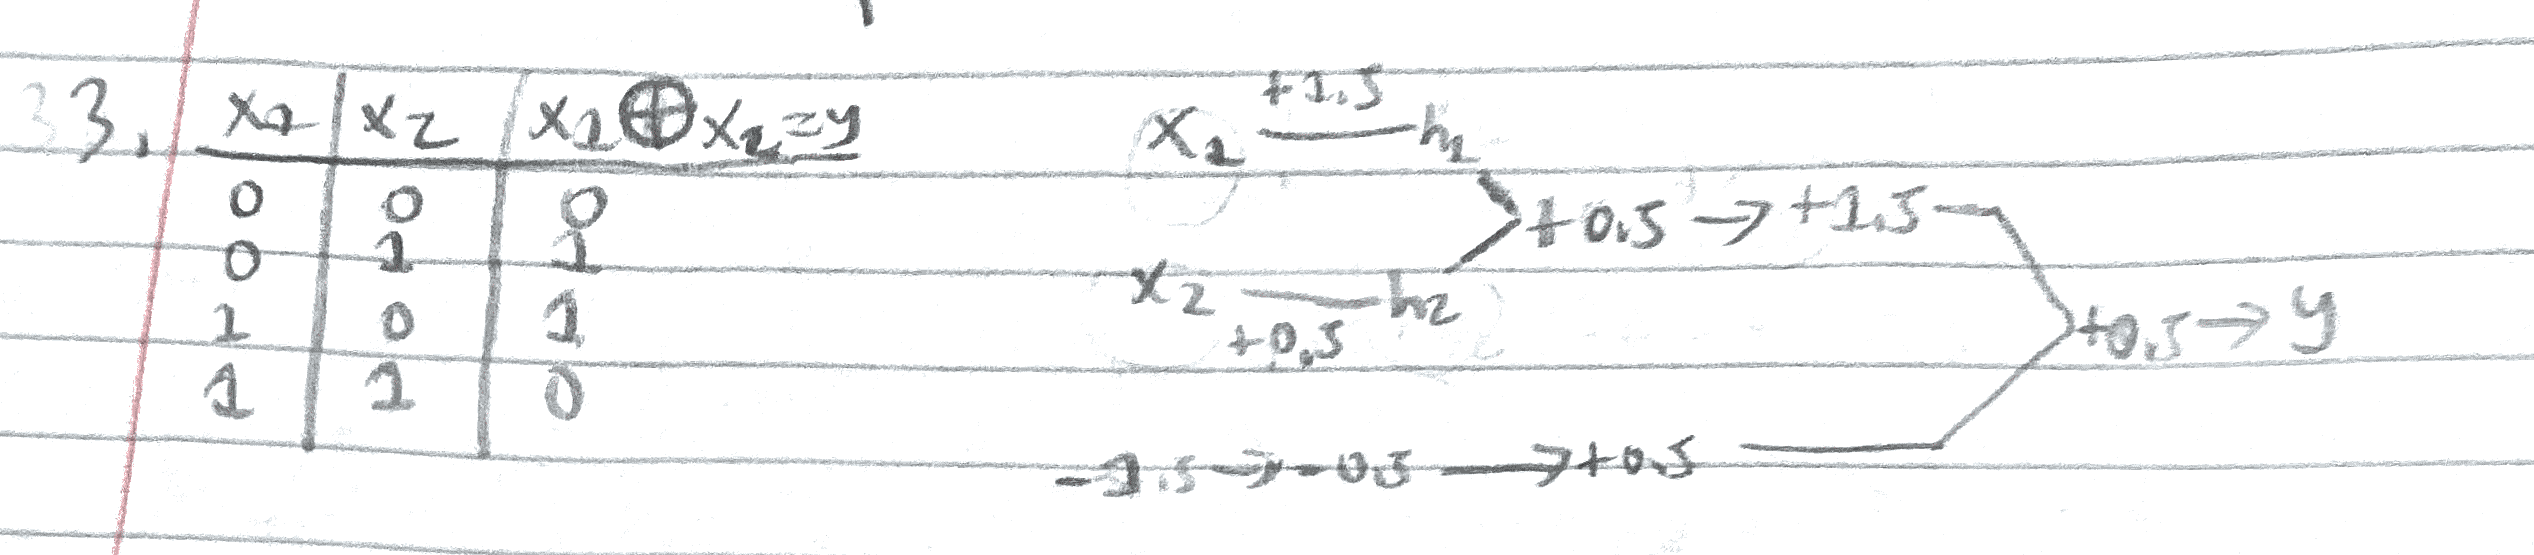 33. x1 x2 x1 ⊕ x2 = y
0 0 0
0 1 1
1 0 1
1 1 0
x1 +1.5 h1
+0.5 → +1.5
x2 +0.5 h2
+0.5 → y
-1.5 → -0.5 → +0.5